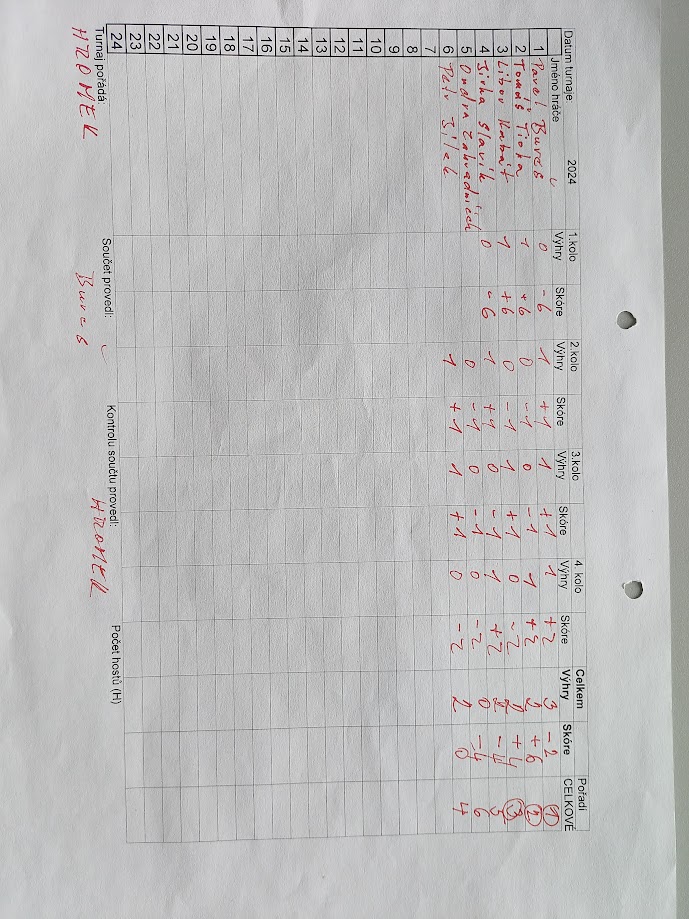 Datum turnaje: 2024 1.kolo 2.kolo 3.kolo 4. kolo Celkem Pořadí
Jméno hráče Výhry Skóre Výhry Skóre Výhry Skóre Výhry Skóre Výhry Skóre CELKOVÉ
1 Pavel Bureš 0 -6 1 +1 1 +1 1 +2 3 -2 1
2 Tomáš 1 +6 0 -1 0 -1 1 +2 2 +6 2
3 Libor Kabát 1 +6 0 -1 1 +1 0 -2 2 +4 3
4 Jirka Slavík 0 -6 1 +1 0 -1 1 +2 2 -4 5
5 Ondra 0 -1 0 -1 0 -2 0 -4 6
6 Petr Bílek 1 +1 1 +1 0 -2 2 0 4
7
8
9
10
11
12
13
14
15
16
17
18
19
20
21
22
23
24
Turnaj pořádá: Součet provedl: Kontrolu součtu provedl: Počet hostů (H)
HROMEK Bureš HROMEK